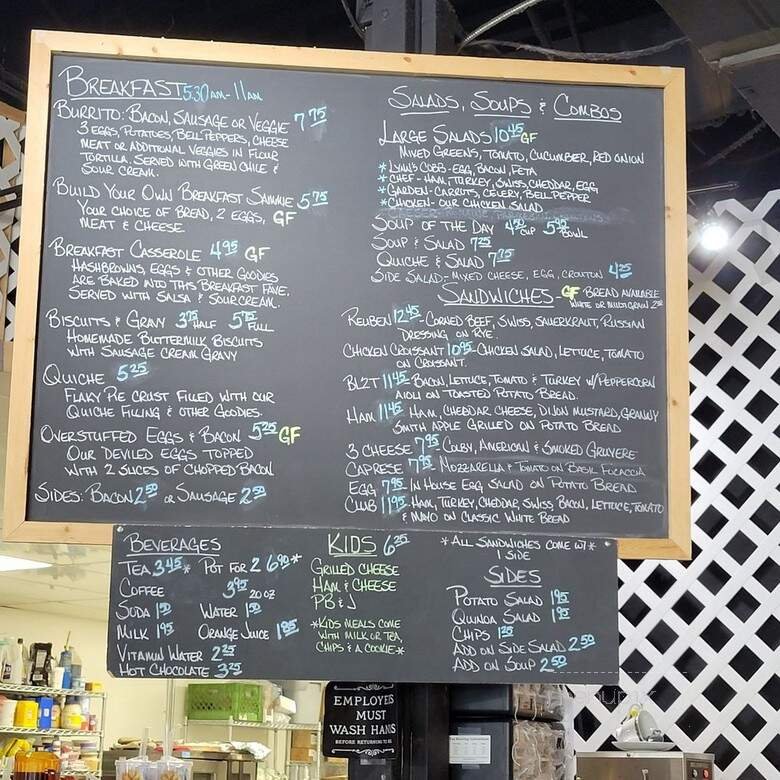 BREAKFAST 5:30AM-11AM
BURRITO: BACON, SAUSAGE OR VEGGIE 7 75
3 EGGS, POTATOES, BELL PEPPERS, CHEESE
MEAT OR ADDITIONAL VEGGIES IN FLOUR
TORTILLA. SERVED WITH GREEN CHILE &
SOUR CREAM.
BUILD YOUR OWN BREAKFAST SAMMIE 5 75
YOUR CHOICE OF BREAD, 2 EGGS, GF
MEAT & CHEESE
BREAKFAST CASSEROLE 4 95 GF
HASHBROWNS, EGGS & OTHER GOODIES
ARE BAKED INTO THIS BREAKFAST FAVE.
SERVED WITH SALSA & SOUR CREAM.
BISCUITS & GRAVY 3 75 HALF 5 75 FULL
HOMEMADE BUTTERMILK BISCUITS
WITH SAUSAGE CREAM GRAVY
QUICHE 5 25
FLAKY PIE CRUST FILLED WITH OUR
QUICHE FILLING & OTHER GOODIES.
OVERSTUFFED EGGS & BACON 5 25 GF
OUR DEVILED EGGS TOPPED
WITH 2 SLICES OF CHOPPED BACON
SIDES: BACON 2 50 OR SAUSAGE 2 50
SALADS, SOUPS & COMBOS
LARGE SALADS 10 45 GF
MIXED GREENS, TOMATO, CUCUMBER, RED ONION
*LYNN'S COBB-EGG, BACON, FETA
*CHEF-HAM, TURKEY, SWISS, CHEDDAR, EGG
*GARDEN-CARRITS, CELERY, BELL PEPPER
*CHICKEN-OUR CHICKEN SALAD
SOUP OF THE DAY 4 50 CUP 5 95 BOWL
SOUP & SALAD 7 25
QUICHE & SALAD 7 75
SIDE SALAD-MIXED CHEESE, EGG, CROUTON 4 25
SANDWICHES-GF BREAD AVAILABLE
WHITE OR MULTIGRAIN 2 50
REUBEN 12 45-CORNED BEEF, SWISS, SAUERKRAUT, RUSSIAN
DRESSING ON RYE.
CHICKEN CROISSANT 10 95-CHICKEN SALAD, LETTUCE, TOMATO
ON CROISSANT.
BLZT 11 45 BACON, LETTUCE, TOMATO & TURKEY W/PEPPERCORN
AIOLI ON TOASTED POTATO BREAD.
HAM 11 45 HAM, CHEDDAR CHEESE, DIJON MUSTARD, GRANNY
SMITH APPLE GRILLED ON POTATO BREAD
3 CHEESE 7 95 COLBY, AMERICAN & SMOKED GRUYERE
CAPRESE 7 95 MOZZARELLA & TOMATO ON BASIL FOCACCIA
EGG 7 95-IN HOUSE EGG SALAD ON POTATO BREAD
CLUB 11 95-HAM, TURKEY, CHEDDAR, SWISS, BACON, LETTUCE, TOMATO
& MAYO ON CLASSIC WHITE BREAD
BEVERAGES
TEA 3 45 * POT FOR 2 6 90 *
COFFEE 3 95 20 OZ
SODA 1 50 WATER 1 50
MILK 1 95 ORANGE JUICE 1 85
VITAMIN WATER 2 25
HOT CHOCOLATE 3 25
KIDS 6 25
GRILLED CHEESE
HAM & CHEESE
PB & J
*KIDS MEALS COME
WITH MILK OR TEA,
CHIPS & A COOKIE*
*ALL SANDWICHES COME W/*
1 SIDE
SIDES
POTATO SALAD 1 95
QUINOA SALAD 1 95
CHIPS 1 25
ADD ON SIDE SALAD 2 50
ADD ON SOUP 2 50
EMPLOYEES
MUST
WASH HANDS
BEFORE RETURNING TO